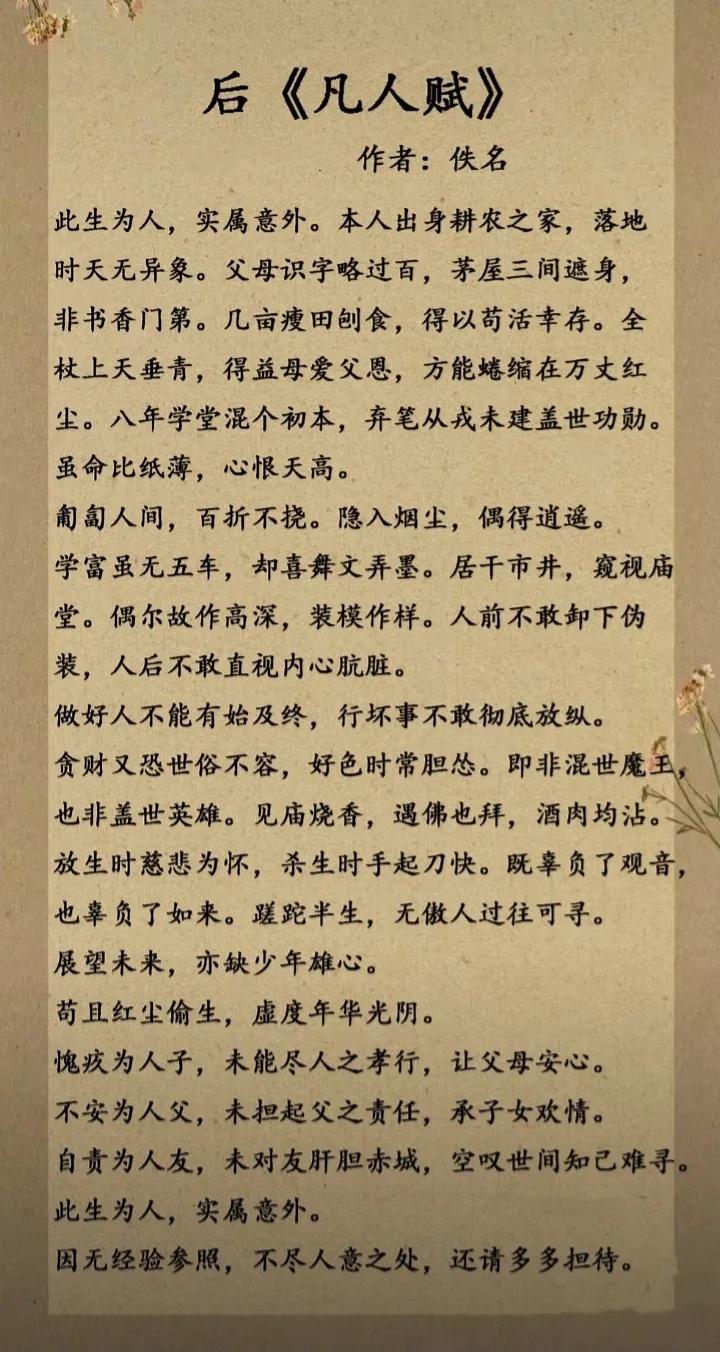 后《凡人赋》
作者：佚名
此生为人，实属意外。本人出身耕农之家，落地
时天无异象。父母识字略过百，茅屋三间遮身，
非书香门第。几亩瘦田刨食，得以苟活幸存。全
杖上天垂青，得益母爱父恩，方能蜷缩在万丈红
尘。八年学堂混个初本，弃笔从戎未建盖世功勋。
虽命比纸薄，心恨天高。
匍匐人间，百折不挠。隐入烟尘，偶得逍遥。
学富虽无五车，却喜舞文弄墨。居干市井，窥视庙
堂。偶尔故作高深，装模作样。人前不敢卸下伪
装，人后不敢直视内心肮脏。
做好人不能有始及终，行坏事不敢彻底放纵。
贪财又恐世俗不容，好色时常胆怂。即非混世魔王，
也非盖世英雄。见庙烧香，遇佛也拜，酒肉均沾。
放生时慈悲为怀，杀生时手起刀快。既辜负了观音，
也辜负了如来。蹉跎半生，无傲人过往可寻。
展望未来，亦缺少年雄心。
苟且红尘偷生，虚度年华光阴。
愧疚为人子，未能尽人之孝行，让父母安心。
不安为人父，未担起父之责任，承子女欢情。
自责为人友，未对友肝胆赤城，空叹世间知己难寻。
此生为人，实属意外。
因无经验参照，不尽人意之处，还请多多担待。